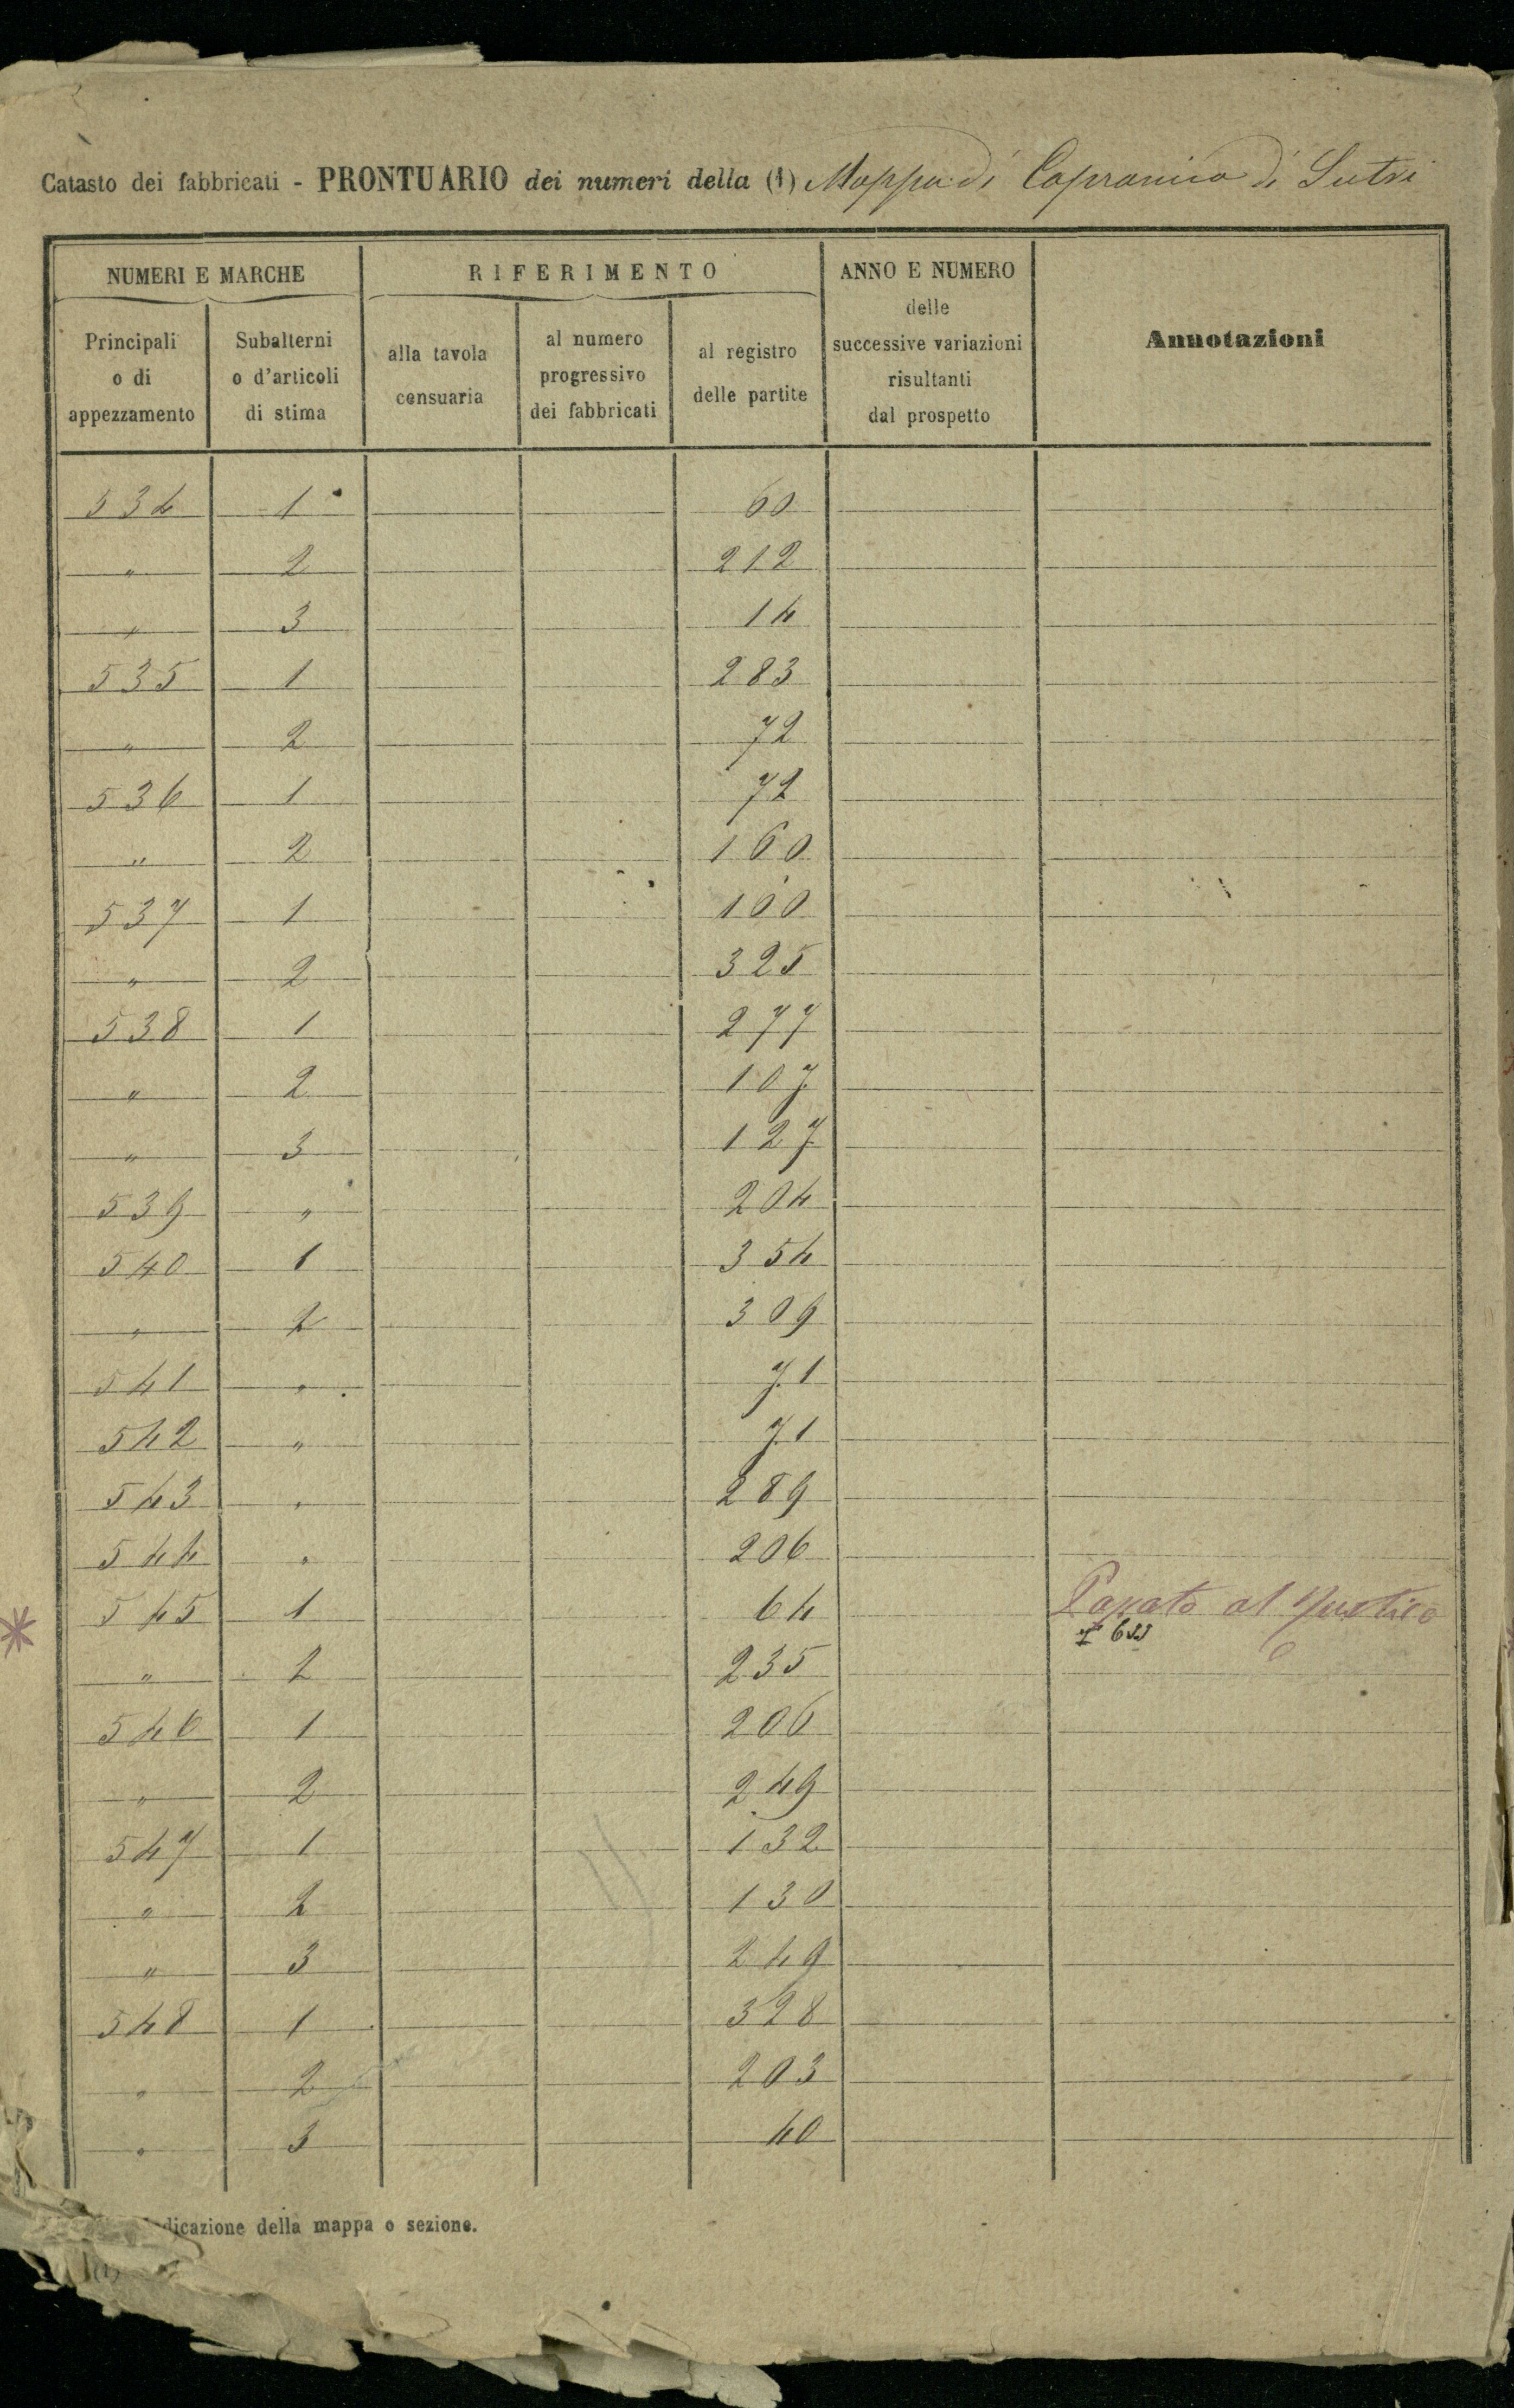 Catasto dei fabbricati - PRONTUARIO dei numeri della (1) Mappa di Capranica di Sutri
NUMERI E MARCHE
RIFERIMENTO
ANNO E NUMERO
delle
successive variazioni
risultanti
dal prospetto
Annotazioni
Principali
o di
appezzamento
Subalterni
o d'articoli
di stima
alla tavola
censuaria
al numero
progressivo
dei fabbricati
al registro
delle partite
534 1 60
" 2 212
" 3 14
535 1 283
" 2 72
536 1 72
" 2 160
537 1 100
" 2 325
538 1 277
" 2 107
" 3 127
539 " 204
540 1 354
" 2 309
541 " 71
542 " 71
543 " 289
544 " 206
545 1 64 al
" 2 235
546 1 206
" 2 249
547 1 132
" 2 130
" 3 249
548 1 328
" 2 203
" 3 40
dicazione della mappa o sezione.
(1)